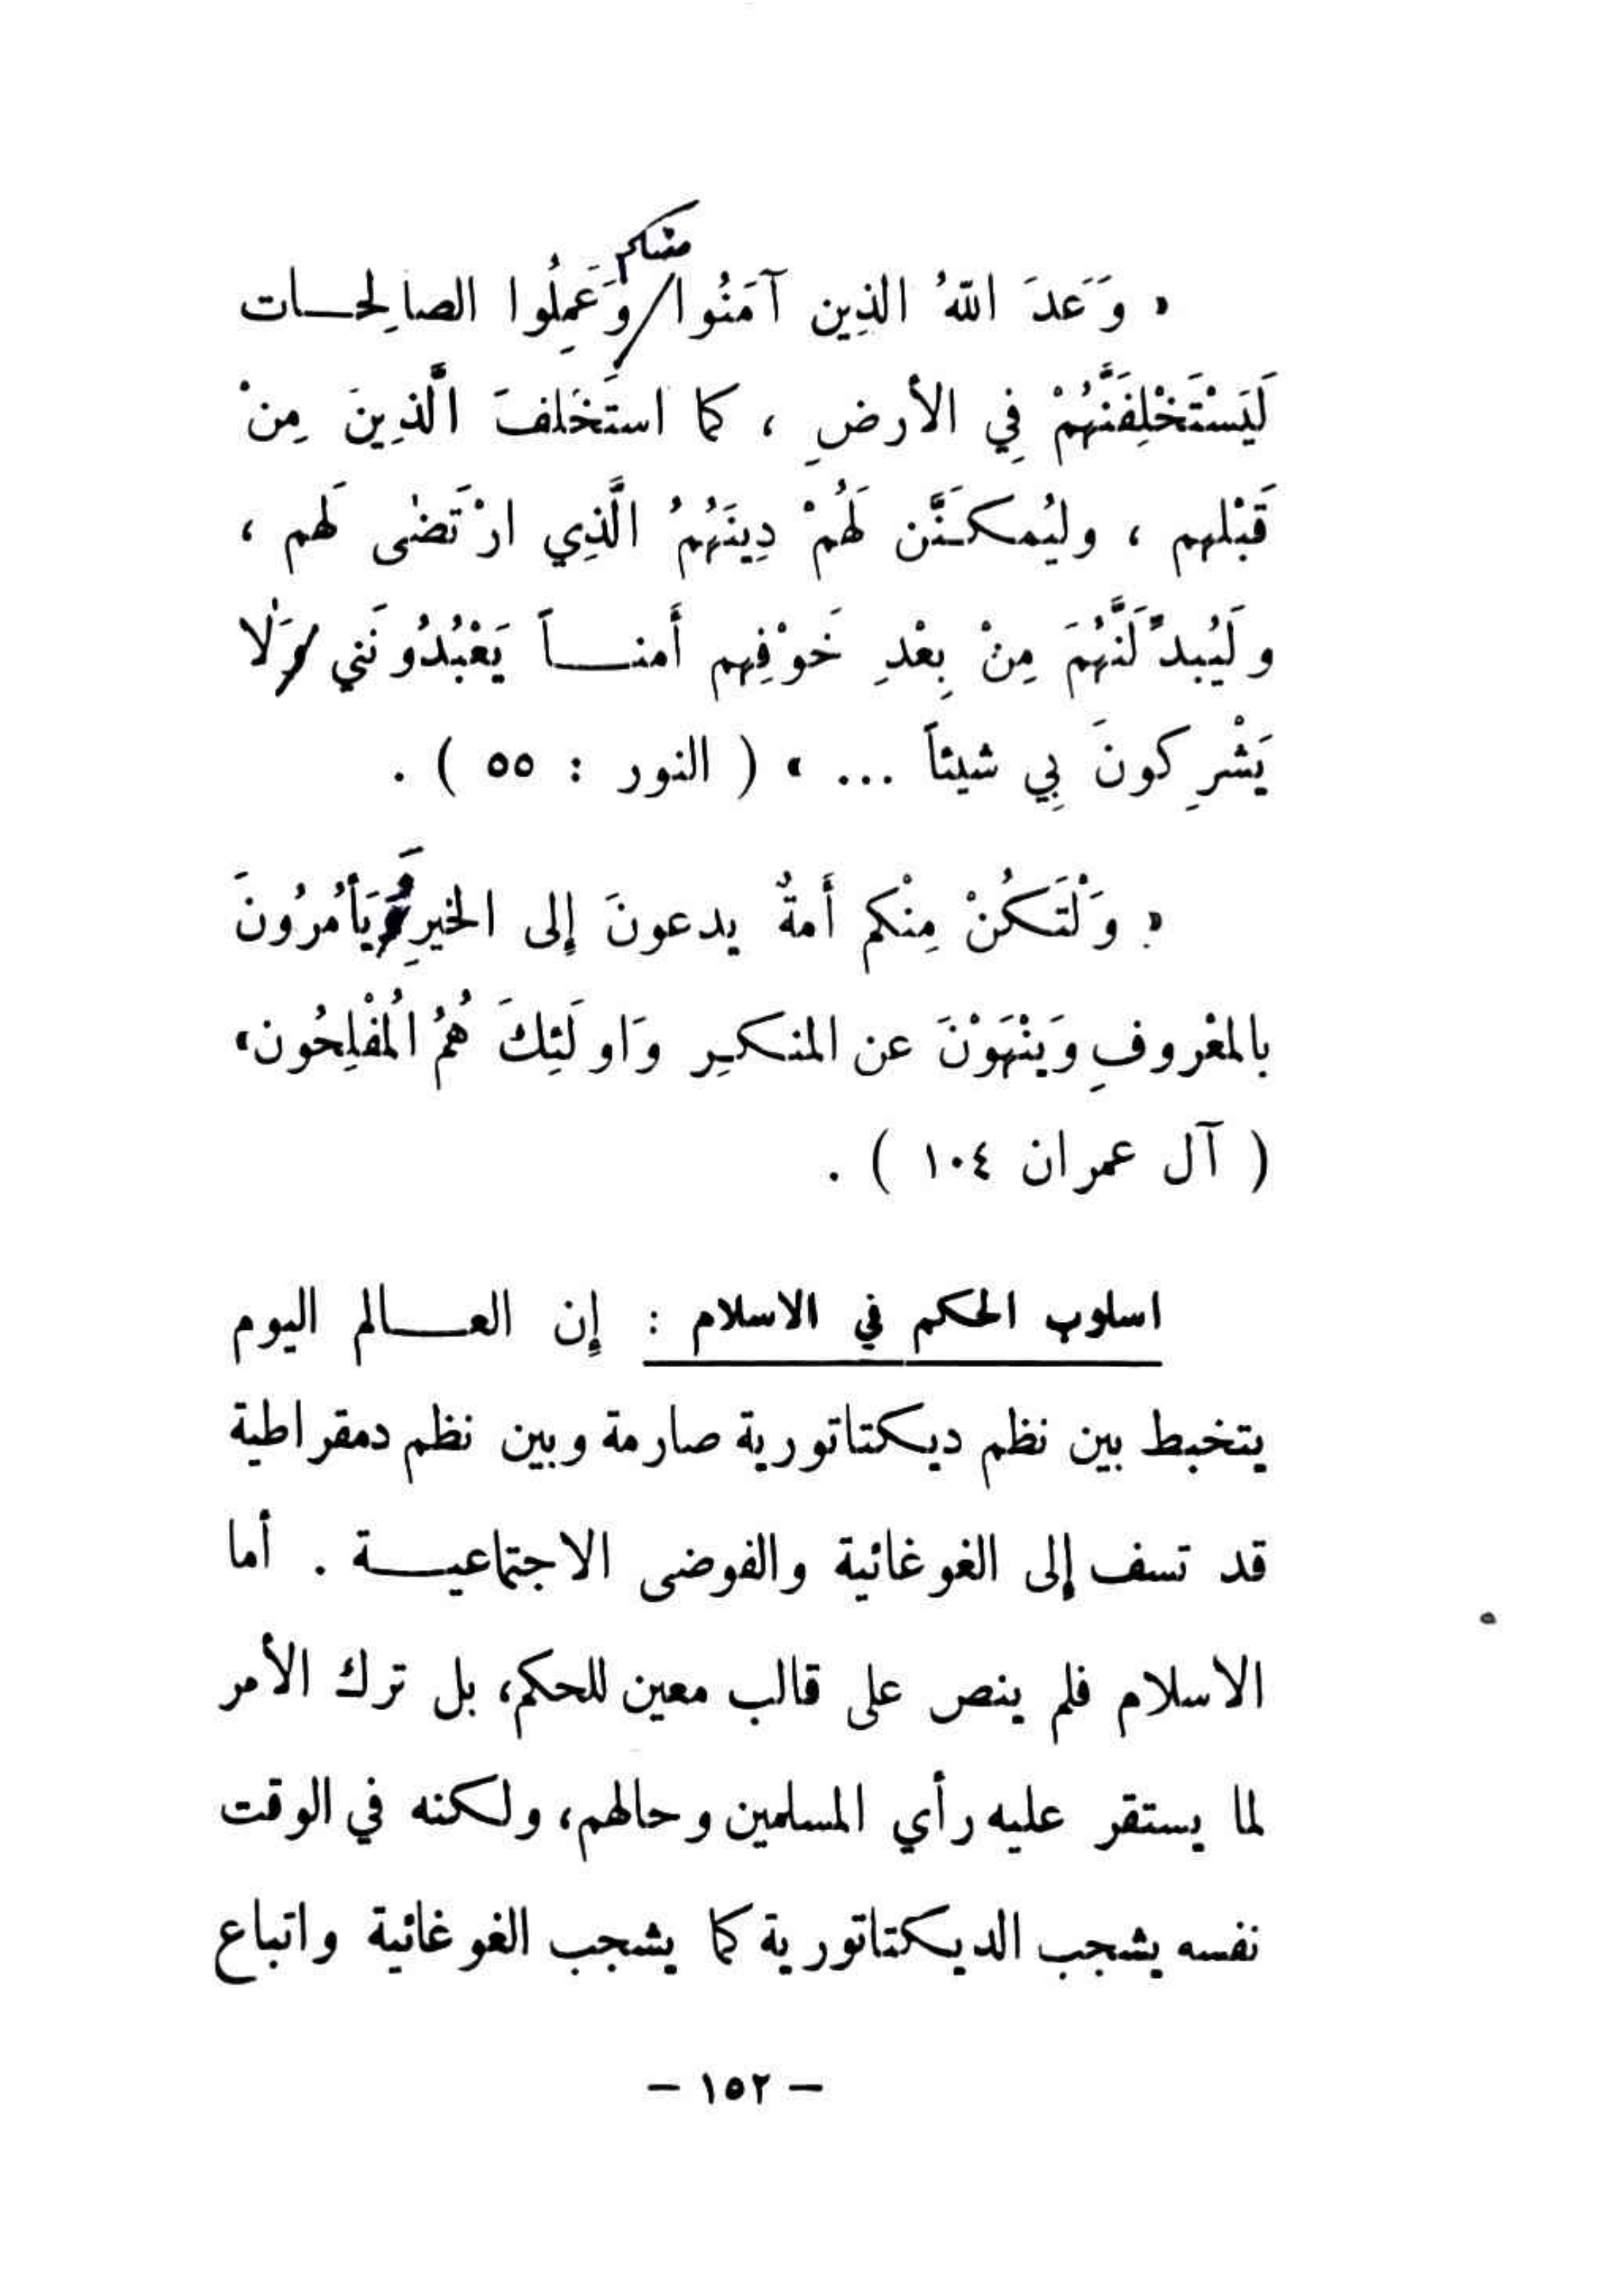 منكم
« وَعَدَ اللهُ الذِين آمَنُوا / وَعَمِلُوا الصالِحــات
لَيَسْتَخْلِفَنَّهُمْ فِي الأرضِ ، كما استَخَلفَ الَّذِينَ مِنْ
قَبْلهم ، وليُمكـَنَّن لَهُمْ دِينَهُمُ الَّذِي ارْتَضٰى لَهم ،
ولَيُبدِّ لَنَّهُمَ مِنْ بِعْدِ خَوْفِهم أَمنــاً يَعْبُدُونَني وَلٰا
يَشْرِكونَ بِي شيئاً ... » ( النور : ٥٥ ) .
« وَلْتَكُنْ مِنْكم أَمةٌ يدعونَ إلى الخيرِ وَيَأمُرُونَ
بالمعْروفِ وَيَنْهَوْنَ عن المنكـِر وَاولَئِكَ هُمُ المُفْلِحُون»
( آل عمران ١٠٤ ) .
اسلوب الحكم في الاسلام : إن العــالم اليوم
يتخبط بين نظم ديكتاتورية صارمة وبين نظم دمقراطية
قد تسف إلى الغوغائية والفوضى الاجتماعيــة . أما
الاسلام فلم ينص على قالب معين للحكم، بل ترك الأمر
لما يستقر عليه رأي المسلمين وحالهم، ولكنه في الوقت
نفسه يشجب الديكتاتورية كما يشجب الغوغائية واتباع
– ١٥٢ –